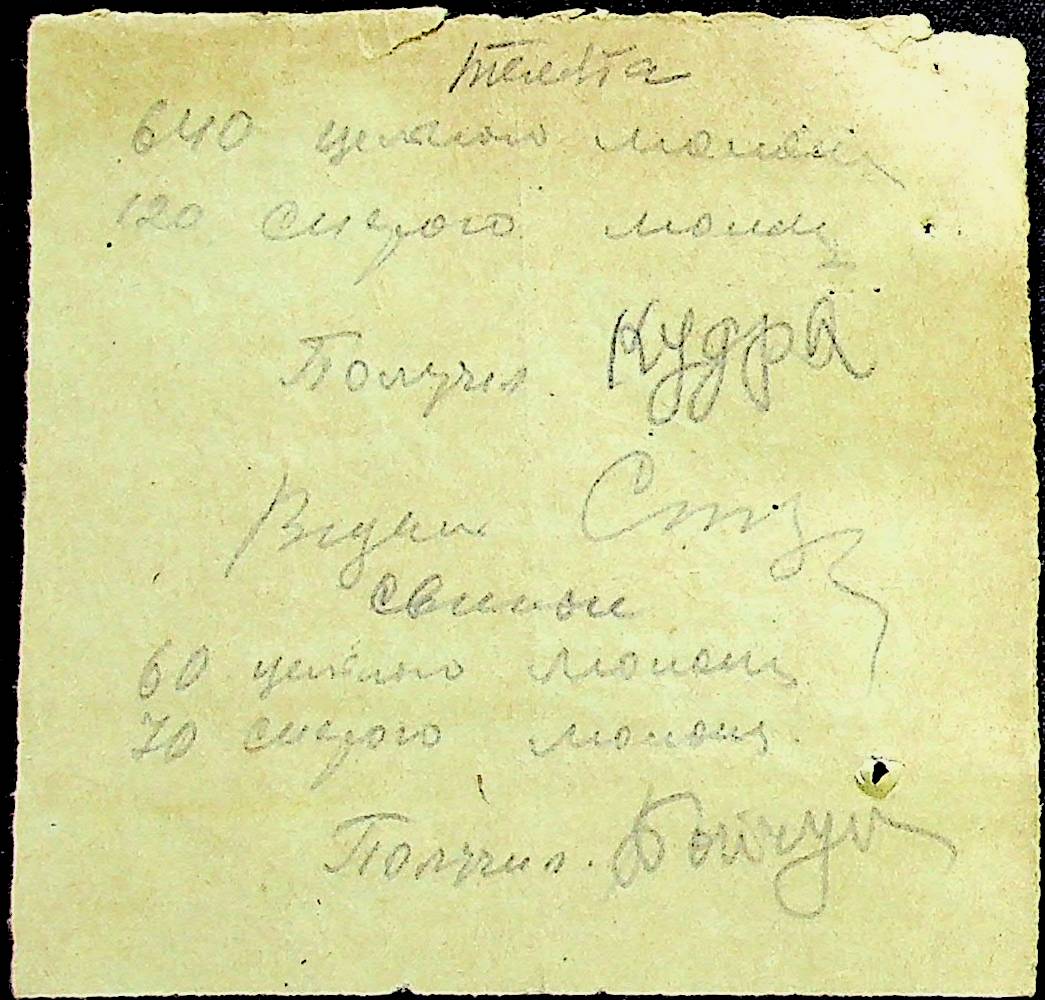 Телята
640 цельного молока
120 сырого молока
Получил Кудра
Выдан
свиньи
60 цельного молока
70 сырого молока
Получил.